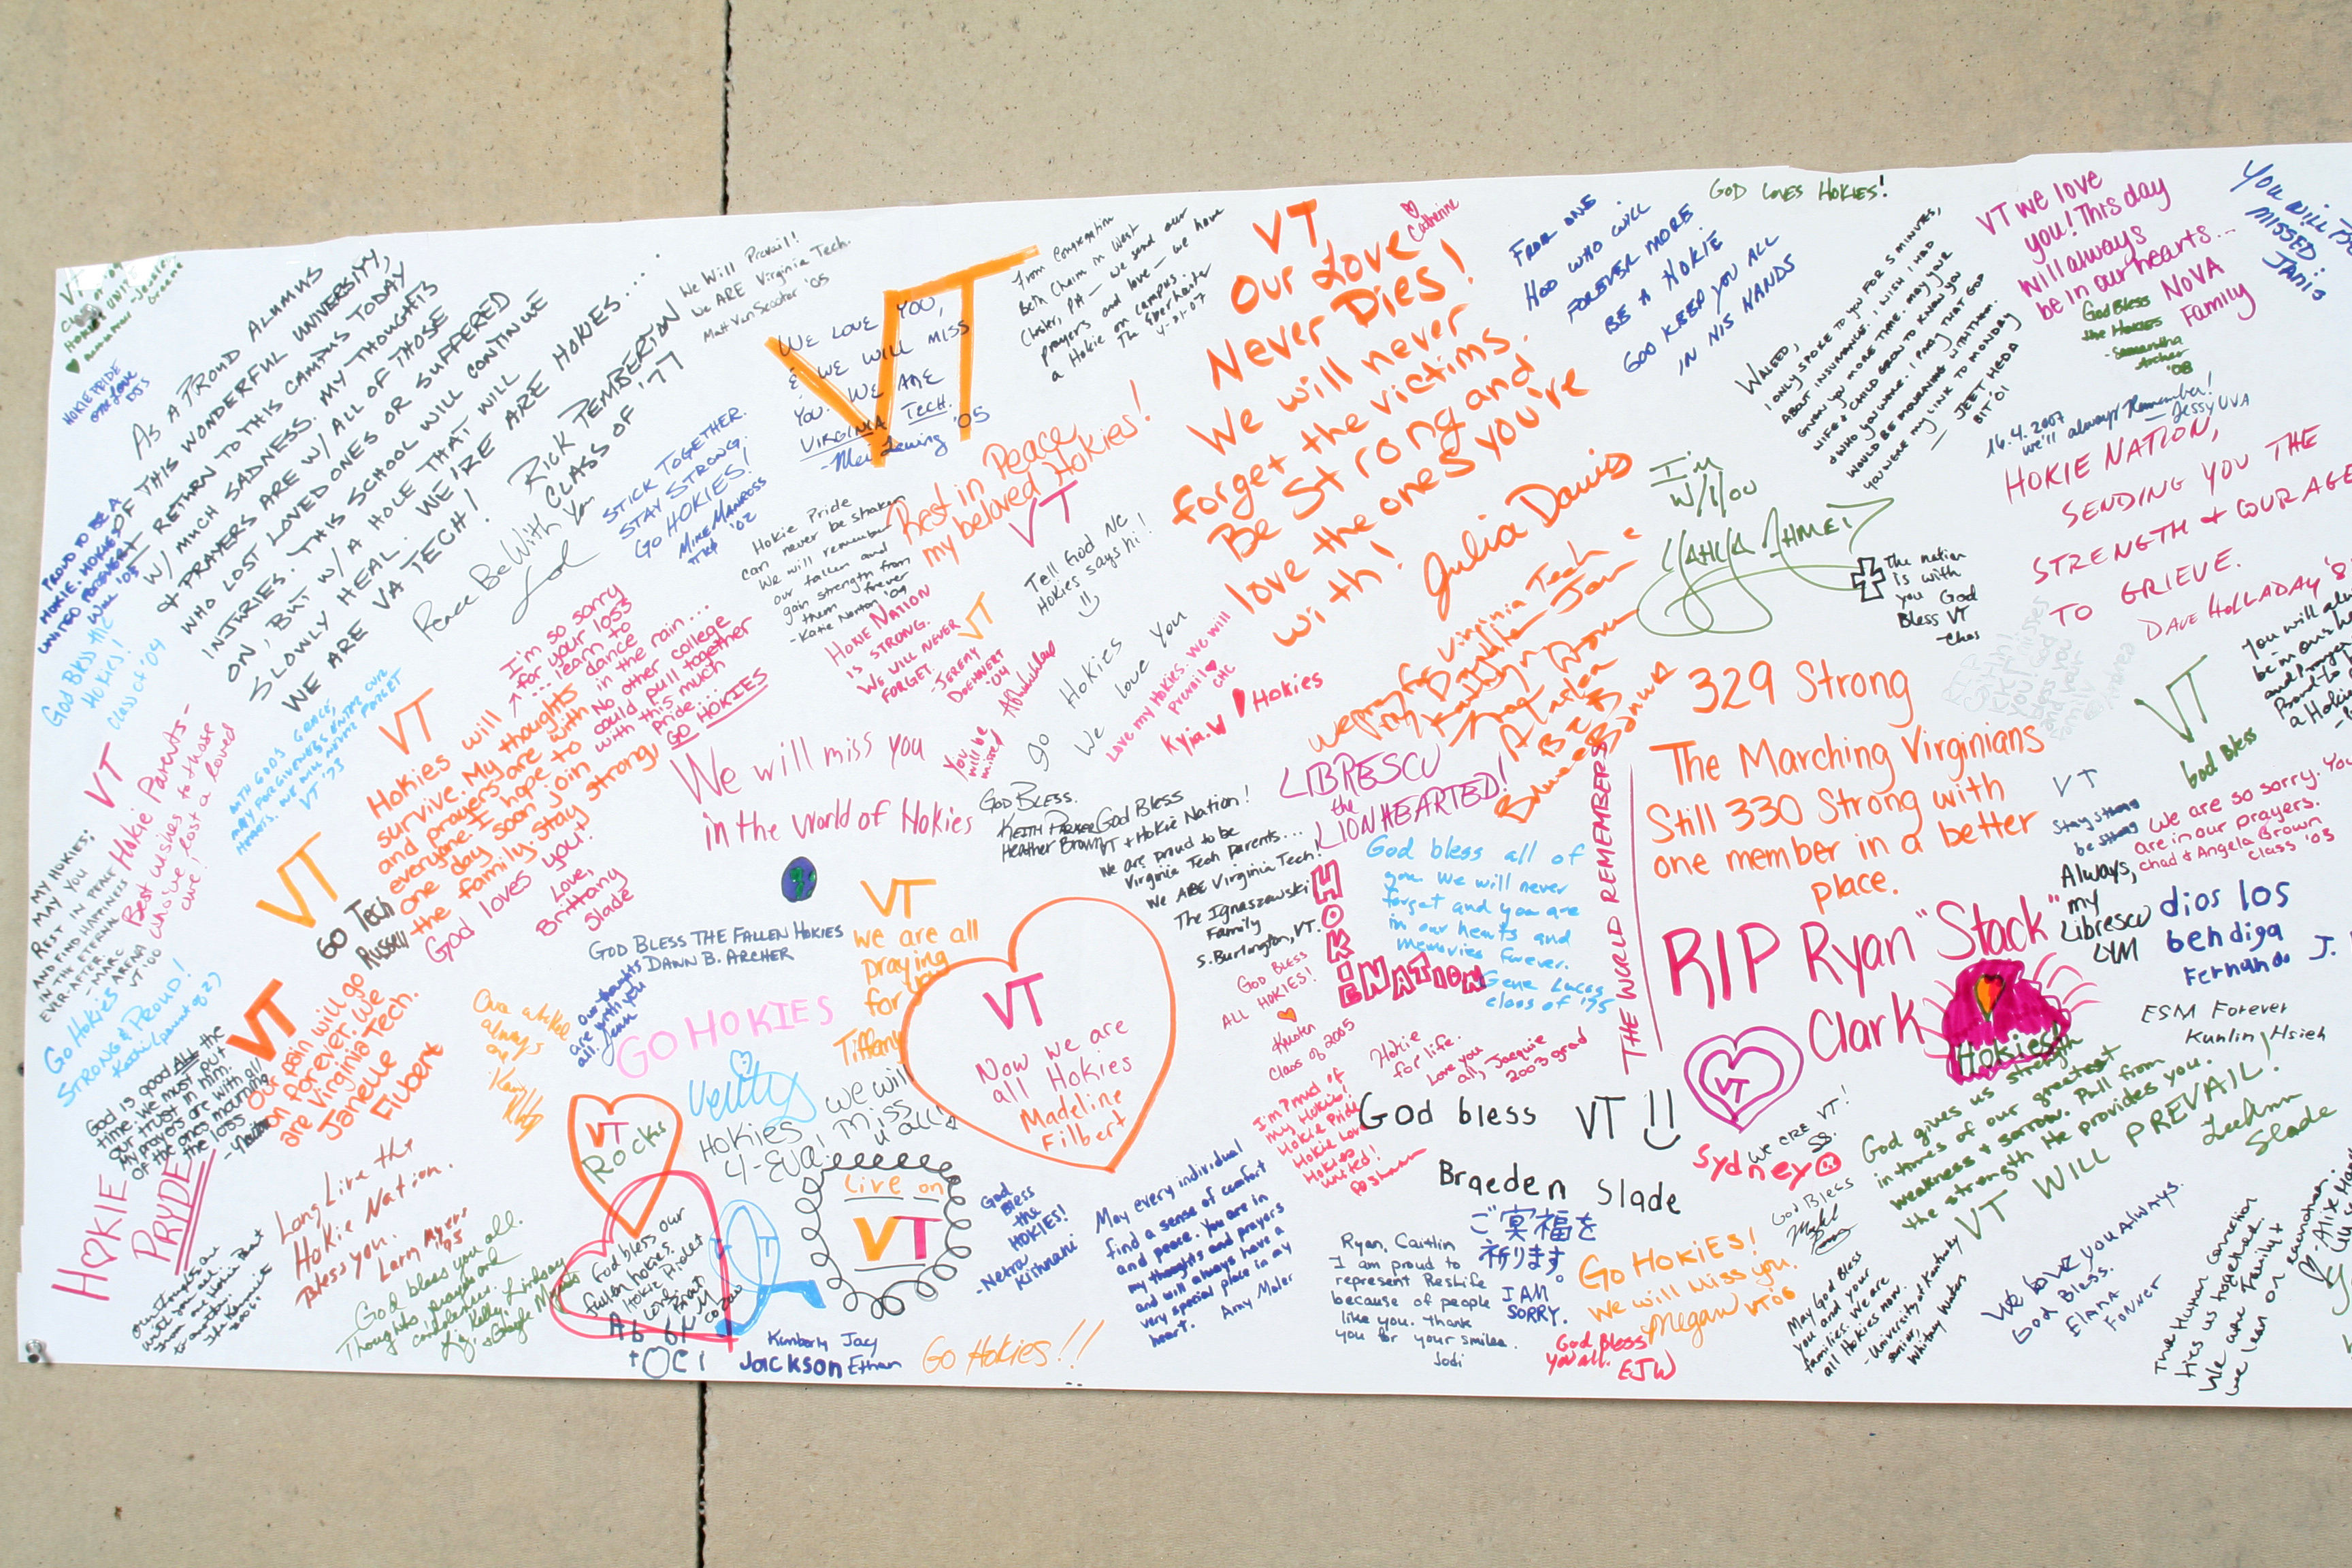 AS A PROUD ALUMUS
OF THIS WONDERFUL UNIVERSITY,
I RETURN TO THIS CAMPUS TODAY
W/ MUCH SADNESS. MY THOUGHTS
& PRAYERS ARE W/ ALL OF THOSE
WHO LOST LOVED ONES OR SUFFERED
INJURIES. THIS SCHOOL WILL CONTINUE
ON, BUT W/ A HOLE THAT WILL
SLOWLY HEAL. WE'RE ARE HOKIES....
WE ARE VA TECH!
RICK PEMBERTON
CLASS OF '77
Peace Be With You
HOKIE PRIDE
one love
DJS
PROUD TO BE A
HOKIE. HOKIES
UNITED FOREVER!
Will '05
God Bless the
Hokies!
Class of '04
We Will Prevail!
We ARE Virginia Tech.
Matt VanScooter '05
VT
WE LOVE YOU,
& WE WILL MISS
YOU. WE ARE
VIRGINIA TECH.
'05
STICK TOGETHER.
STAY STRONG.
GO HOKIES!
MIKE MANROSS
'02
From Congregation
Beth Chaim in West
Chester, PA — we send our
prayers and love — we have
a Hokie on campus.
The Eberharter
4-21-07
Hokie Pride
can never be shaken
We will remember
our fallen and
gain strength from
them forever
-Katie Norton '09
Rest in Peace
my beloved Hokies!
VT
Tell God NC
Hokies says hi!
HOKIE NATION
IS STRONG.
WE WILL NEVER
FORGET.
-JEREMY
DOEHNERT
'04
VT
Go Hokies
We love you
You
will be
missed
Love my Hokies. We will
Prevail
CHC
Kyia.W Hokies
VT
Our Love
Never Dies!
We will never
forget the victims.
Be Strong and
love the ones you're
with!
Julia Davis
Catherine
We pray for Virginia Tech
FROM ONE
HOO WHO WILL
FOREVER MORE
BE A HOKIE
GOD KEEP YOU ALL
IN HIS HANDS
GOD LOVES HOKIES!
WALEED,
I ONLY SPOKE TO YOU FOR 5 MINUTES,
ABOUT INSURANCE. I WISH I HAD
GIVEN YOU MORE TIME. MAY YOUR
WIFE & CHILD GROW TO KNOW YOU
& WHO YOU WERE. I PRAY THAT GOD
WOULD BE MOURNING WITH THEM.
YOU WERE MY LINK TO MONDAY
— JEET HEDA
BIT '01
I'm
W/ You
YAHYA AHMED
The nation
is with
you God
Bless VT
-Chas
VT we love
you! This day
will always
be in our hearts...
NoVA
Family
God Bless
the Hokies
-Samantha
Archer
'08
YOU WILL BE
MISSED
JANIS
16.4.2007
we'll always Remember!
Jessy UVA
HOKIE NATION,
SENDING YOU THE
STRENGTH & COURAGE
TO GRIEVE.
DAVE HOLLADAY '8
VT
God Bless
VT
Stay strong
be strong
We are so sorry. You
are in our prayers.
Chad & Angela Brown
class '03
329 Strong
The Marching Virginians
Still 330 Strong with
one member in a better
place.
RIP Ryan "Stack"
Clark
Hokies
VT
Always,
my
Librescu
LYM
dios los
bendiga
Fernando J.
ESM Forever
Kunlin Hsieh
God gives us strength
in times of our greatest
weakness & sorrow. Pull from
the strength He provides you.
VT WILL PREVAIL!
LeeAnn
Slade
THE WORLD REMEMBERS
LIBRESCU
the
LIONHEARTED!
God bless all of
you. We will never
forget and you are
in our hearts and
memories forever.
Gene Lucas
class of '75
HOKIE
NATION
WITH GOD'S GRACE,
MAY FORGIVENESS ENTER OUR
HEARTS. WE WILL NEVER FORGET
VT '73
VT
Hokies will
survive. My thoughts
and prayers are with
everyone. I hope to
one day soon join
the family. Stay strong.
God loves you!
Love,
Brittany
Slade
I'm so sorry
for your loss
... learn to
dance
in the rain...
No other college
could pull together
with this much
pride...
GO HOKIES
VT
Hokie Parents-
Best wishes to those
who've lost a loved
one!
MY HOKIES;
MAY YOU
REST IN PEACE
AND FIND HAPPINESS
IN THE ETERNAL
EVER-AFTER.
-MARC
ARENA
VT '00
VT
Go Tech
Russell
We will miss you
in the world of Hokies
GOD BLESS THE FALLEN HOKIES
DAWN B. ARCHER
GOD BLESS.
KEITH PARKER
Heather Brown
God Bless
VT + Hokie Nation!
We are proud to be
Virginia Tech Parents...
We ARE Virginia Tech!
The Ignaszewski
Family
S. Burlington, VT.
Go Hokies
STRONG & PROUD!
Kathi (parent of 2)
God is good ALL the
time. We must put
our trust in him.
My prayers are with all
of the ones mourning
the loss.
VT
Our pain will go
on forever. We
are Virginia Tech.
Janelle
Flubert
Our thoughts
are with you
all.
GO HOKIES
VT
we are all
praying
for you
Tiffany
VT
Now we are
all Hokies
Madeline
Filbert
GOD BLESS
ALL HOKIES!
Kristen
Class of 2005
Hokie
for life.
Love you
all, Jacquie
2003 grad
I'm Proud of
my Hokies!
Hokie Pride
Hokie Love
Hokies
United!
God bless VT !!
Braeden Slade
Sydney
We ARE VT!
SS.
God Bless
HOKIE
PRYDE
Long Live the
Hokie Nation.
Bless you.
Larry Myers
'95
God bless you all.
Thoughts, prayers and
condolences.
VT
Rocks
Hokies
4-EVA!
we will
miss
u all!
Live on
VT
God bless our
fallen hokies.
Hokie Pride!
Love,
Brian
God
Bless
the
HOKIES!
-Netra
Kirnani
Kimberly Jay
Jackson Ethan
Go Hokies!!
May every individual
find a sense of comfort
and peace. You are in
my thoughts and prayers
and will always have a
very special place in my
heart. Amy Maler
Ryan, Caitlin
I am proud to
represent Reslife
because of people
like you. Thank
you for your smiles.
Jodi
ご冥福を
祈ります。
I AM
SORRY.
God Bless
you all.
EJW
Go HOKiES!
We will miss you.
Megan VT'06
May God Bless
you and your
families. We are
all Hokies now.
-University of Kentucky
senior,
Whitney Waters
We love you always.
God Bless.
Elana
Fonner
The Human Connection
ties us together.
We are family &
we lean on eachother.